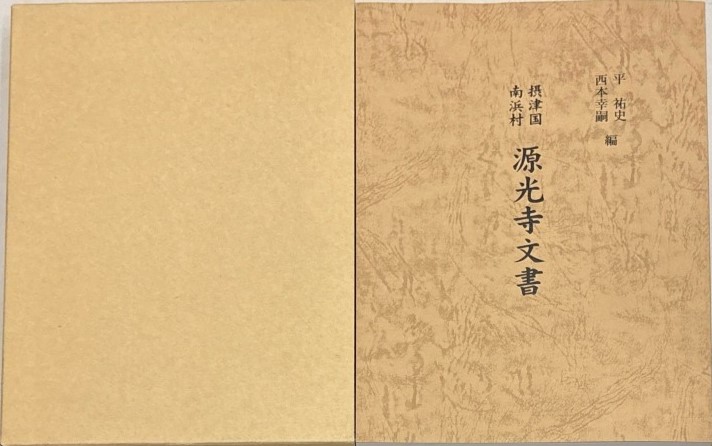 平　祐史
西本幸嗣　編
摂津国
南浜村
源光寺文書